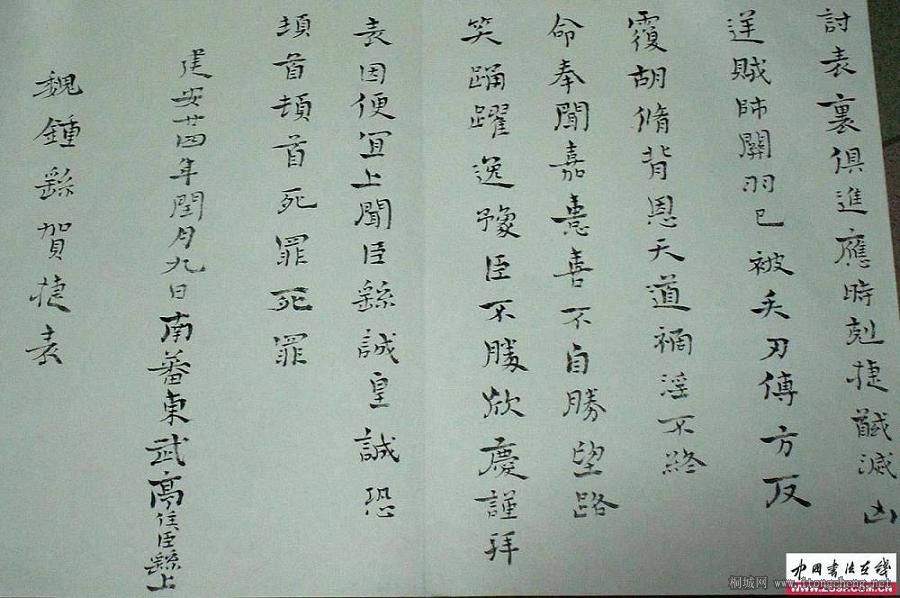 討表裏俱進應時剋捷馘滅凶
逆賊帥關羽已被矢刃傅方反
覆胡脩背恩天道禍淫不終
命奉聞嘉憙喜不自勝望路
笑踊躍逸豫臣不勝欣慶謹拜
表因便宜上聞臣繇誠皇誠恐
頓首頓首死罪死罪
建安廿四年閏月九日南蕃東武亭侯臣繇上
魏鍾繇賀捷表
中国书法在线
桐城网 www.itongcheng.net